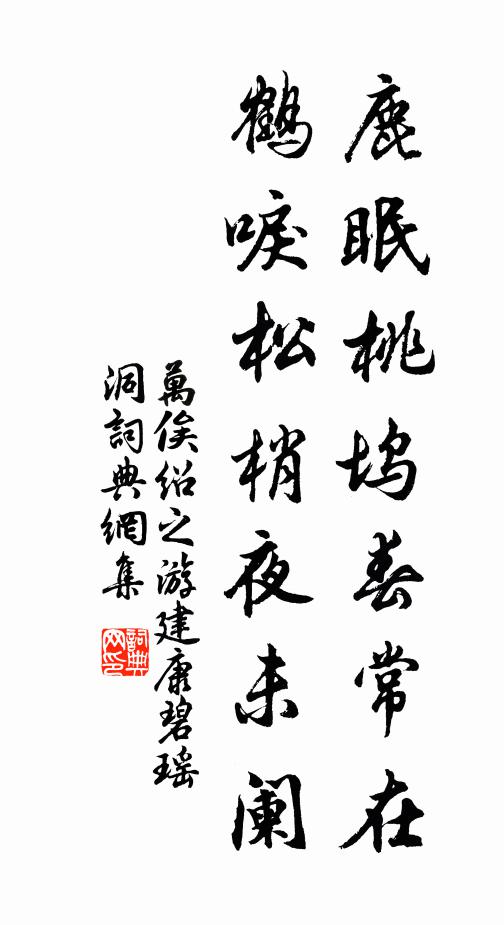 鹿眠桃坞春常在
鶴唳松梢夜未阑
萬俟绍之游建康碧瑶
洞詞典網集
詞典
网印